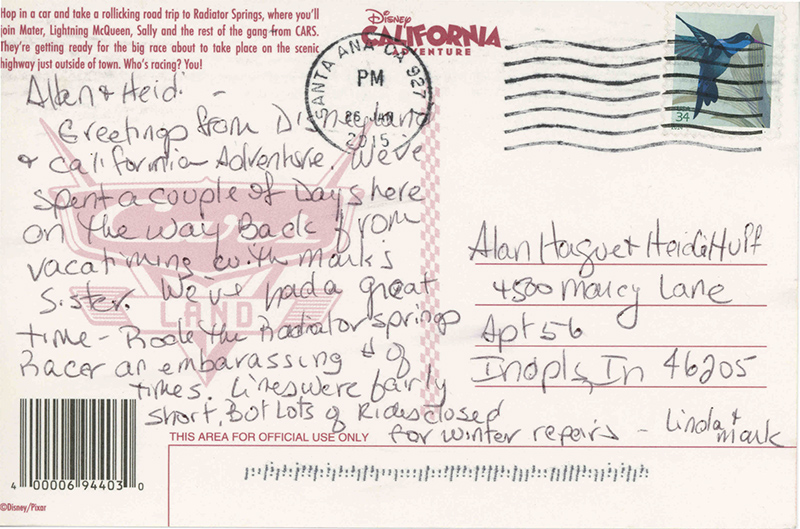 Hop in a car and take a rollicking road trip to Radiator Springs, where you'll
join Mater, Lightning McQueen, Sally and the rest of the gang from CARS.
They're getting ready for the big race about to take place on the scenic
highway just outside of town. Who's racing? You!
Disney
CALIFORNIA
ADVENTURE
SANTA ANA CA 927
PM
26 JAN
2015
USA
34
Alan & Heidi -
Greetings from Disneyland
& California Adventure. We've
spent a couple of Days here
on the way Back from
vacationing with Mark's
Sister. We've had a great
time - Rode the Radiator Springs
Racer an embarassing # of
times. Lines were fairly
short, But Lots of Rides closed
for winter repairs - Linda &
Mark
Cars
LAND
Alan Hague & Heidi Huff
4500 Marcy Lane
Apt 56
Inopls, In 46205
THIS AREA FOR OFFICIAL USE ONLY
4 00006 94403 0
©Disney/Pixar